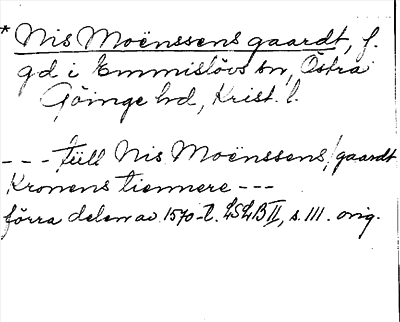 * Nis Moënssens gaardt, f.
gd i Emmislövs sn, Östra
Göinge hd, Krist. l.
--- till Nis Moënssens/gaardt
Kronens tiennere ---
förra delen av 1570-t. LSLB II, s. 111. orig.